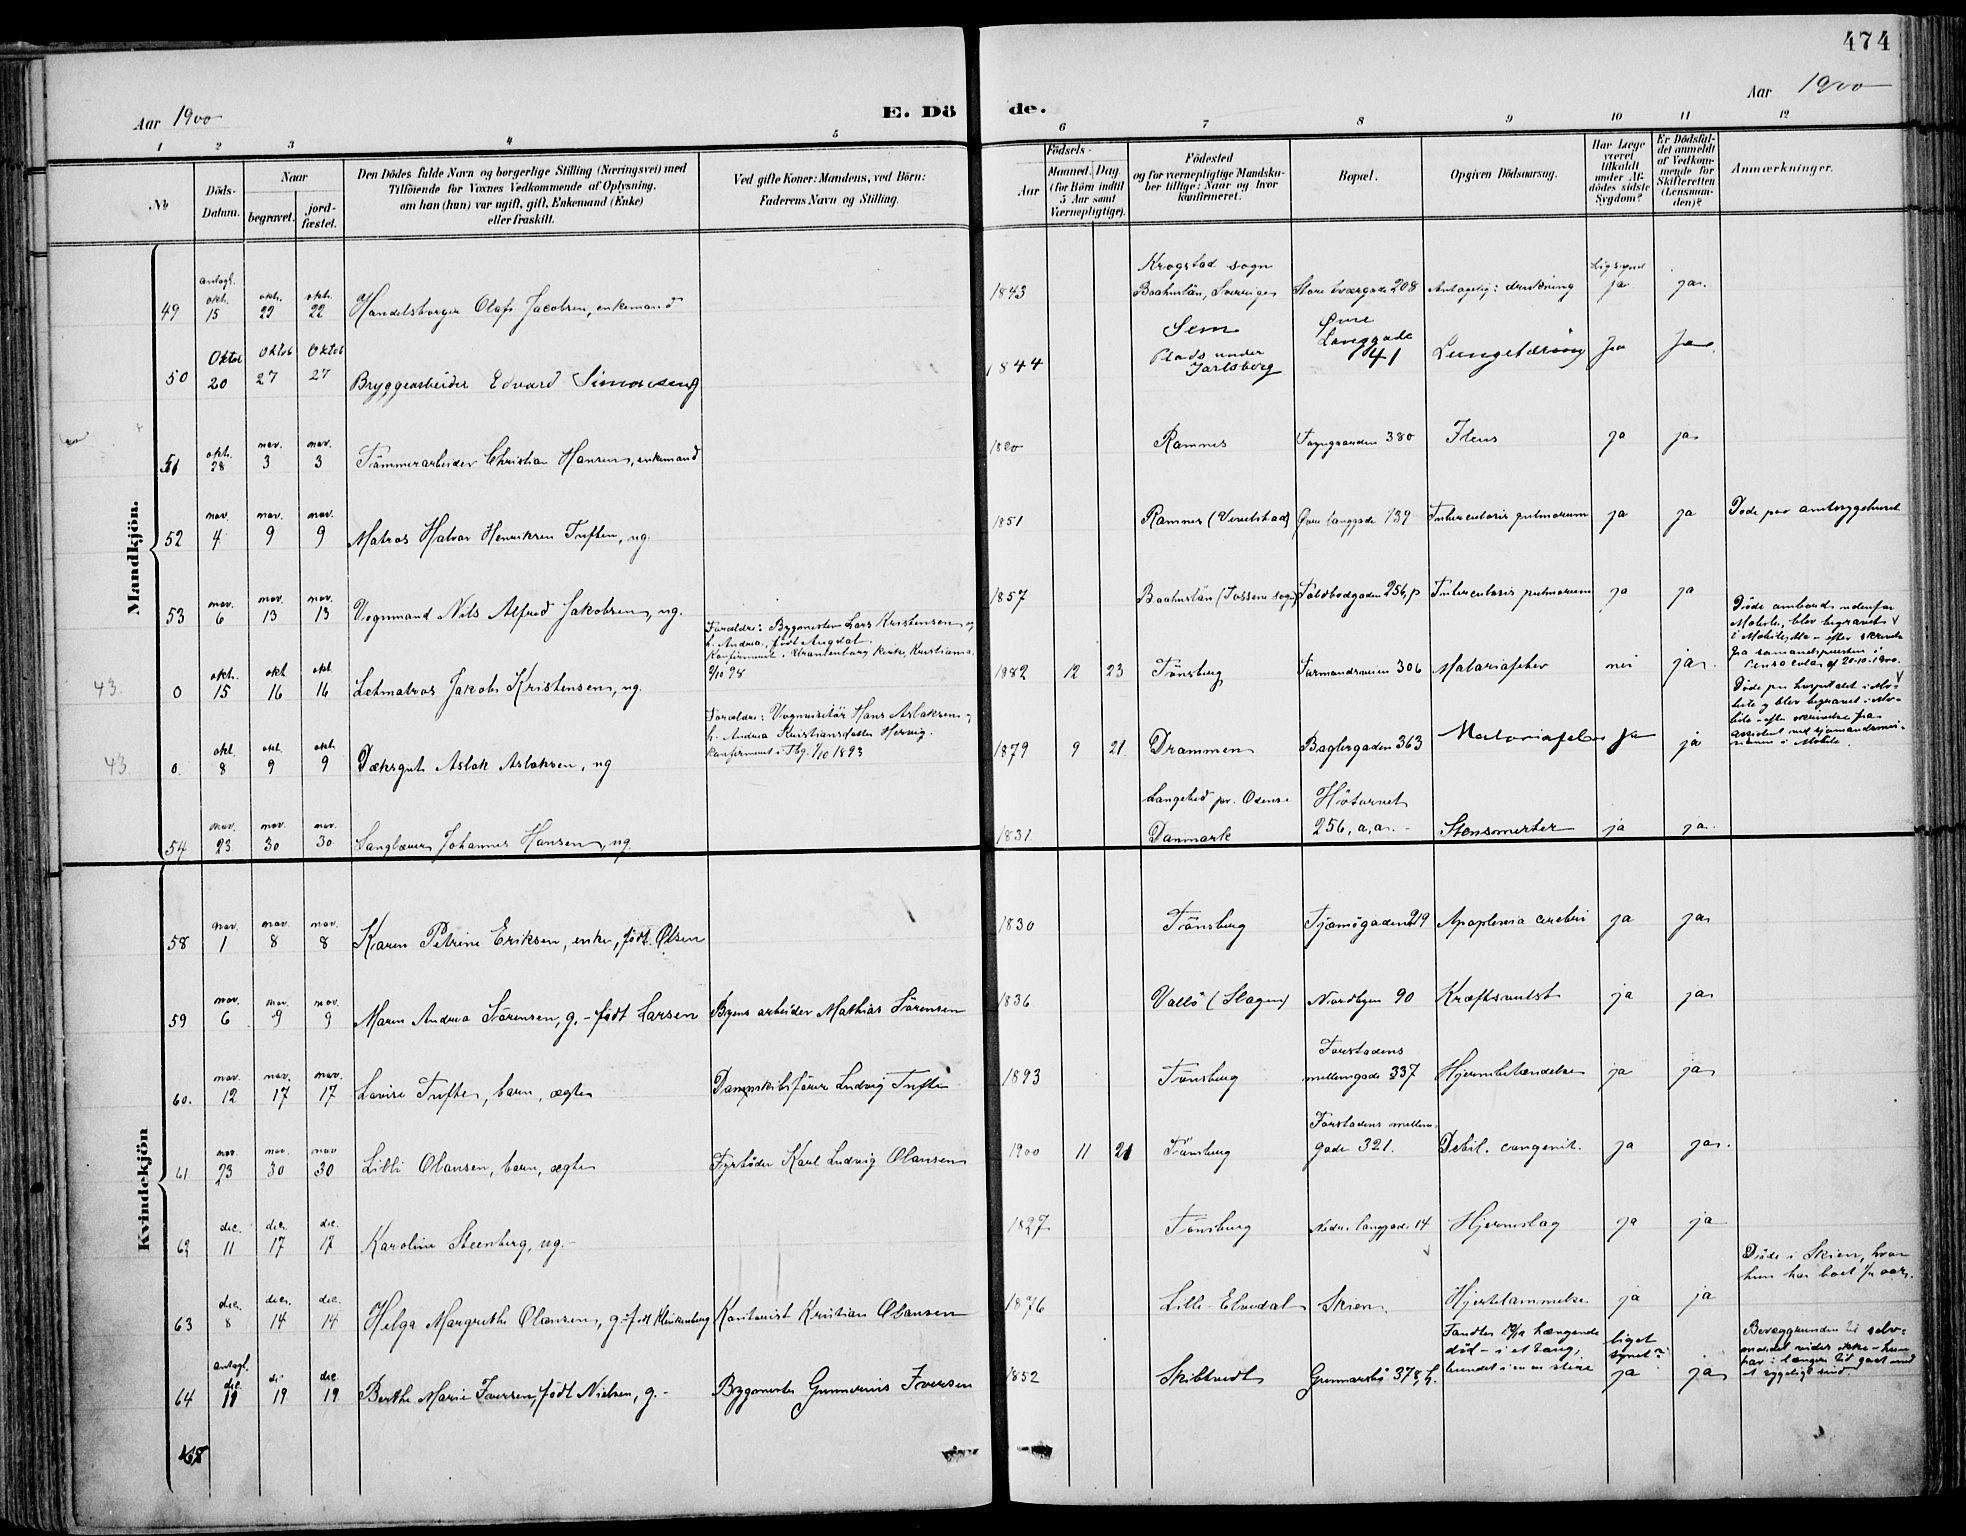 474
Aar 1900
E. Dö
de.
Aar 1900
1 2 3 4 5 6 7 8 9 10 11 12
№
Döds-
Datum.
Naar
begravet.
jord-
fæstet.
Den Dödes fulde Navn og borgerlige Stilling (Næringsvei) med
Tilföiende for Voxnes Vedkommende af Oplysning,
om han (hun) var ugift, gift, Enkemand (Enke)
eller fraskilt.
Ved gifte Koner: Mandens, ved Börn:
Faderens Navn og Stilling.
Födsels-
Aar
Maaned. Dag
(for Börn indtil
5 Aar samt
Værnepligtige).
Födested
og for værnepligtige Mandsku-
ber tillige: Naar og hvor
konfirmeret.
Bopæl.
Opgiven Dödsaarsag.
Har Læge
været
tilkaldt
under Af-
dödes sidste
Sygdom?
Er Dödsfal-
det anmeldt
af Vedkom-
mende for
Skifteretten
(Lensman-
den)?
Anmærkninger.
Mandkjön.
49 antagl. okt. 15 okt. 22 okt. 22 Handelsborger Olaf Jacobsen, enkemand 1843 Krogstad sogn
Baahuslän, Sverige Store Tværgade 208 Antagelig: drukning Ligsynet ja ja.
50 Oktob 20 Oktob 27 Oktob 27 Bryggearbeider Edvard Simonsen g 1844 Sem
Plads under
Jarlsberg Øvre
Langgade
41 Lungetæring Ja Ja
51 okt. 28 nov. 3 nov. 3 Tömmerarbeider Christian Hansen, enkemand Ramnes 380 Ileus ja ja
52 nov. 4 nov. 9 nov. 9 Matros Halvor Henriksen Tuften, ug. 1851 Ramnes Øvre langgade 139 Tuberculosis pulmorum ja ja Döde paa amtssygehuset
53 nov. 6 nov. 13 nov. 13 Vognmand Nils Alfred Jakobsen, ug. 1857 Baahuslän (Tossene sogn) Toldbodgaden 256, p Tuberculosis pulmorum ja ja
43. 0 okt. 15 okt 16 okt 16 Letmatros Jakob Kristensen, ug.
Forældre: Bygmester Lars Kristensen og
h. Andrea, født Augdal.
Konfirmeret i Uranienborg kirke, Kristiania
2/10 98
1882 12 23 Tönsberg Formandsveien 306 Malariafeber nei ja.
Döde ombord udenfor
Mobile, blev begravet
i Mobile, Ala - efter skrivelse
fra sømandspresten i
Pensacola af 20-10-1900.
43 0. okt. 8 okt. 9 okt. 9 Dæksgut Aslak Aslaksen, ug
Forældre: Vognvisitör Hans Aslaksen og
h. Andrea Kristiansdatter Hervig.
Konfirmeret i Tbg. 1/10 1893
1879 9 21 Drammen Baglergaden 363 Malariafeber ja ja
Döde paa hospitalet i Mo-
bile og blev begravet i Mo-
bile - efter skrivelse fra
assistent ved sjømandsmis-
sionen i Mobile.
54 nov. 23 nov. 30 nov. 30 Sanglærer Johannes Hansen, ug. 1831 Langehed pr. Odense
Danmark Høtorvet
256, a, a. - Stensmerter ja ja.
Kvindekjön
58 nov. 1 nov. 8 nov. 8 Karen Petrine Eriksen, enke, født Olsen 1830 Tönsberg Tjømøgaden 219 Apoplexia cerebri ja ja
59 nov. 6 nov. 9 nov. 9 Maren Andrea Sörensen, g. - født Larsen Byens arbeider Mathias Sörensen 1836 Vallö (Slagen) Nordbyen 90 Kræftsvulst ja ja
60. nov. 12 nov. 17 nov. 17 Lovise Tufte, barn, ægte Dampskibsförer Ludvig Tufte 1893 Tönsberg Forstadens
mellemgade 337 Hjernebetændelse ja ja
61 nov. 23 nov. 30 nov 30 Lilli Olausen, barn, ægte Fyrböder Karl Ludvig Olausen 1900 11 21 Tönsberg Forstadens mellem-
gade 321. Debil. congenit. ja ja.
62 dec. 11 dec. 17 dec. 17 Karoline Steenberg, ug. - 1827 Tönsberg Nedre langgade 14 Hjerneslag ja ja
63 dec. 8 dec. 14 dec. 14 Helga Margrethe Olausen, g. - født Klinkenberg Kontorist Kristian Olausen 1876 Lille-Elvedal Skien Hjertelammelse ja ja
Döde i Skien, hvor
hun har boet 1/2 aar.
64 antagl. dec. 11 de 19 dec. 19 Berthe Marie Iversen, født Nielsen, g. - Bygmester Gunnerius Iversen 1852 Skibtvedt Gunnarsbö 378, h.
Fandtes 12/12 hængende
död - i et taug,
bundet i en en stige
liget
synet?
ja ja
Bevæggrunden til selv-
mordet vides ikke - hun
har i længere tid gaat med
et sygeligt sind.